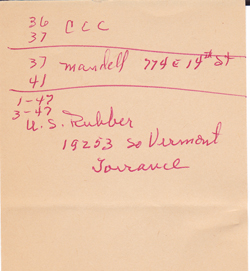 36 C C C
37
37 Mandell 774 E 14th St
41
1-47
3-47
U.S. Rubber
19253 So Vermont
Torrance